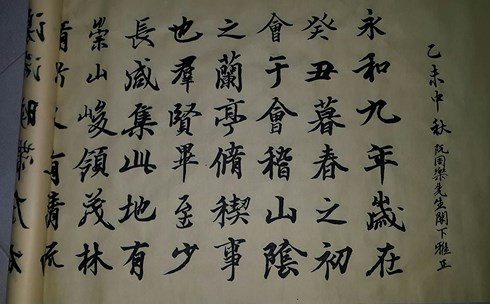 乙未中秋 阮同樂先生閣下雅正
永和九年歲在
癸丑暮春之初
會于會稽山陰
之蘭亭脩稧事
也羣賢畢至少
長咸集此地有
崇山峻領茂林
又有清流